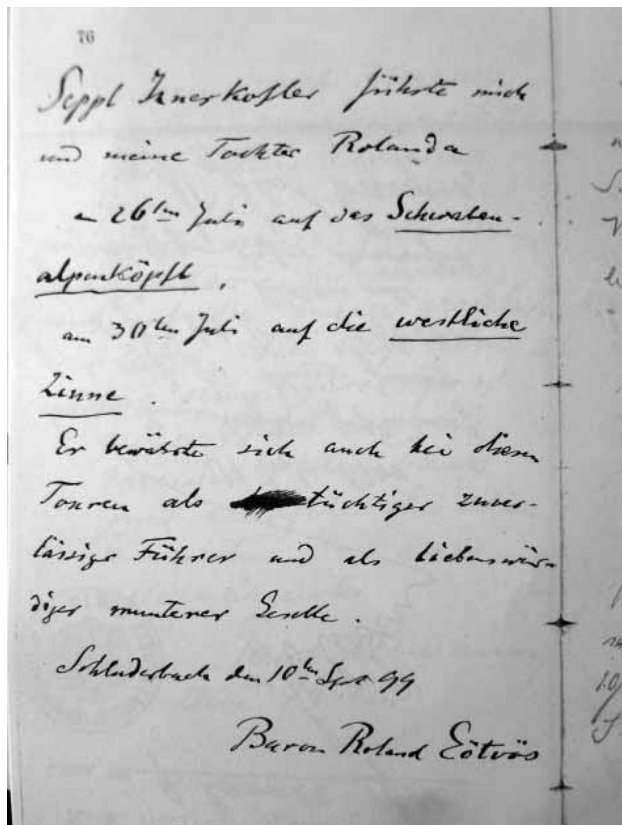 76
Seppl Innerkofler führte mich
und meine Tochter Rolanda
am 26ten Juli auf das Schwaben-
alpenköpfl,
am 30ten Juli auf die westliche
Zinne.
Er bewährte sich auch bei diesen
Touren als tüchtiger zuver-
lässiger Führer und als liebenswür-
diger munterer Geselle.
Schluderbach den 10ten Sept 99
Baron Roland Eötvös